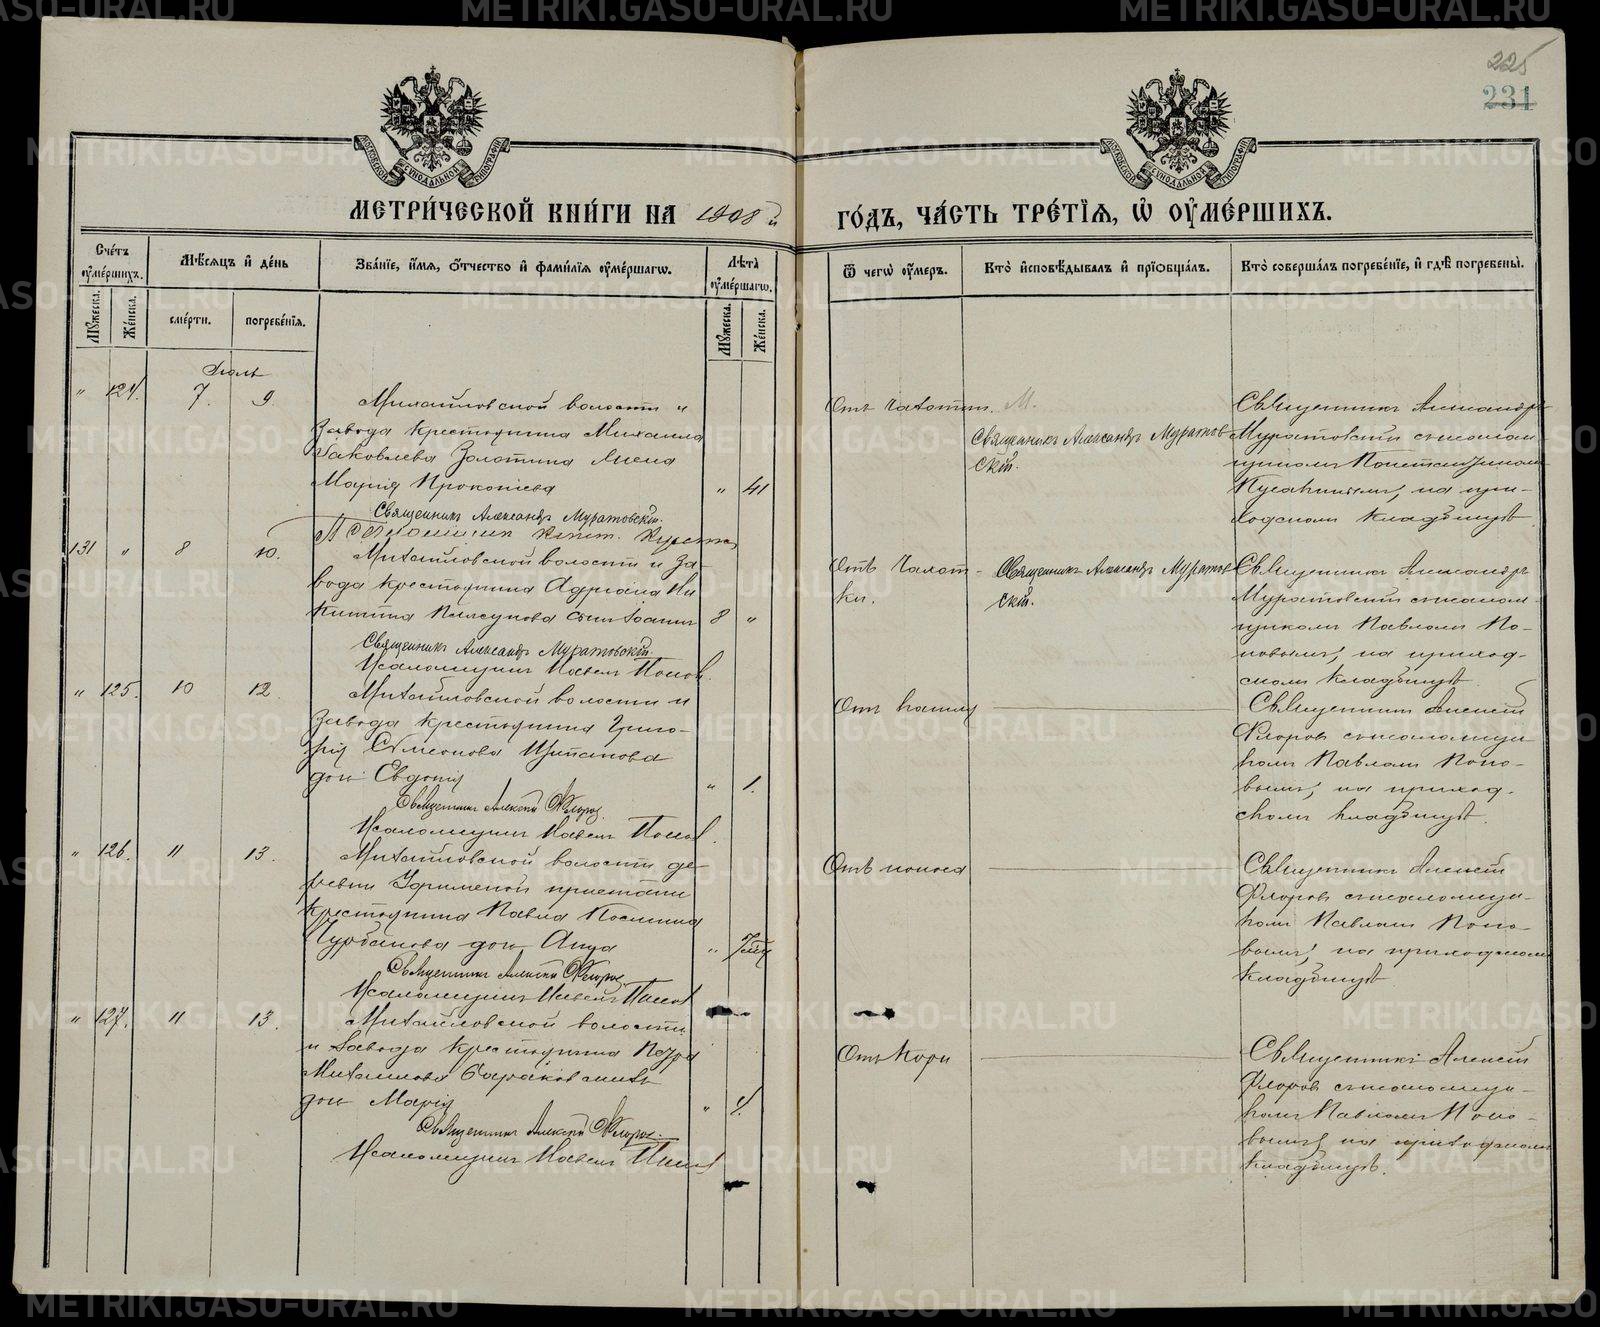 225
231
МОСКОВСКОЙ СѴНОДАЛЬНОЙ ТИПОГРАФІИ
МОСКОВСКОЙ СѴНОДАЛЬНОЙ ТИПОГРАФІИ
МЕТРИ́ЧЕСКОЙ КНИ́ГИ НА 1908 й
ГО́ДЪ, ЧА́СТЬ ТРЕ́ТІѦ, Ѡ҆ ОУ҆МЕ́РШИХЪ.
Сче́тъ оу҆ме́ршихъ.
Мꙋ́жеска.
Же́нска.
Мѣ́сяцъ и҆ де́нь
сме́рти.
погребе́нїѧ.
Зва́нїе, и҆́мѧ, ѻ҆́тчество и҆ фами́лїѧ оу҆ме́ршагѡ.
Лѣ́та оу҆ме́ршагѡ.
Мꙋ́жеска.
Же́нска.
Ѿ чегѡ̀ оу҆́меръ.
Кто̀ и҆сповѣ́дывалъ и҆ прїѡбща́лъ.
Кто̀ соверша́лъ погребе́нїе, и҆ гдѣ̀ погребены̀.
Іюль
" 124. 7. 9.
Михайловской волости и
завода крестьянина Михаила
Яковлева Золотина жена
Мария Прокопіева " 41
Священникъ Александръ Муратовскій.
От чахотки.
Священникъ Александръ Муратов
скій.
Священникъ Александръ
Муратовскій съ псалом
щикомъ Константиномъ
на при-
ходскомъ кладбищѣ
131 " 8 10.
Михайловской волости и за-
вода крестьянина Адріана Ни
китина сынъ Іоаннъ 8 "
Священникъ Александръ Муратовскій.
Псаломщикъ Павелъ Поповъ.
Отъ чахот-
ки.
Священникъ Александръ Муратов
скій.
Священникъ Александръ
Муратовскій съ псалом-
щикомъ Павломъ По-
повымъ, на приход-
скомъ кладбищѣ.
" 125. 10 12.
Михайловской волости и
завода крестьянина Григо-
рія Симеонова Щипанова
дочь Евдокія " 1.
Священникъ Алексій Флоровъ.
Псаломщикъ Павелъ Поповъ.
Отъ кашля
Священникъ Алексій
Флоровъ съ псаломщи
комъ Павломъ Попо-
вымъ, на приход-
скомъ кладбищѣ.
" 126. 11 13.
Михайловской волости де-
ревни Уфимской пристани
крестьянина Павла
Курбанова дочь Анна "
Священникъ Алексій Флоровъ
Псаломщикъ Павелъ Поповъ
Отъ поноса
Священникъ Алексій
Флоровъ съ псаломщи-
комъ Павломъ Попо-
вымъ, на приходскомъ
кладбищѣ
" 127. 11 13.
Михайловской волости
и завода крестьянина Петра
Михайлова
дочь Марія "
Священникъ Алексій Флоровъ.
Псаломщикъ Павелъ Поповъ
Отъ кори
Священникъ Алексій
Флоровъ съ псаломщи-
комъ Павломъ Попо-
вымъ, на приходскомъ
кладбищѣ.